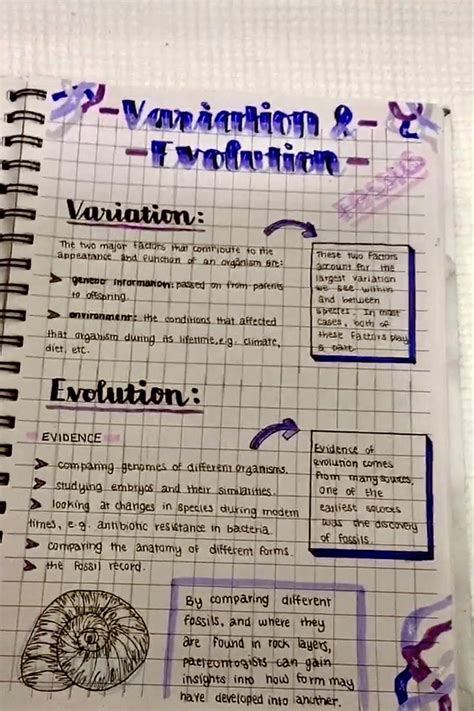 -Variation &-
-Evolution-
FOSSILS
Variation:
The two major factors that contribute to the
appearance and function of an organism are:
genetic information: passed on from parents
to offspring.
environment: the conditions that affected
that organism during its lifetime, e.g. climate,
diet, etc.
These two factors
account for the
largest variation
we see within
and between
species. In most
cases, both of
these factors play
a part.
Evolution:
EVIDENCE
comparing genomes of different organisms.
studying embryos and their similarities.
looking at changes in species during modern
times, e.g. antibiotic resistance in bacteria.
comparing the anatomy of different forms.
the fossil record.
Evidence of
evolution comes
from many sources,
one of the
earliest sources
was the discovery
of fossils.
By comparing different
fossils, and where they
are found in rock layers,
paleontologists can gain
insights into how form may
have developed into another.